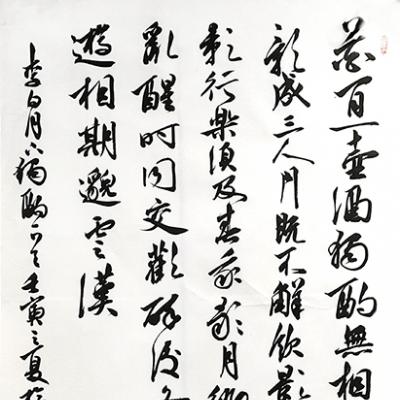 花间一壶酒独酌無相
影成三人月既不解饮影
影行樂须及春我歌月徘
亂醒时同交歡醉后各
遊相期邈雲漢
李白月下独酌一首壬寅之夏於